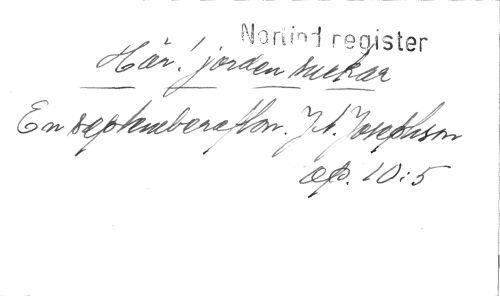 Nortind register
Här! jorden suckar
En septemberafton. J. A. Josephson
op. 10:5